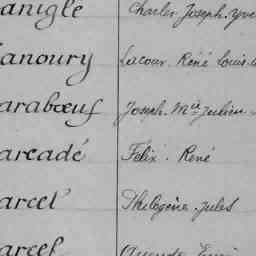 anigle Charles Joseph Yve
anoury Lacour René Louis
arabœuf Joseph Mie Julien
arcadé Félix René
arcel Philogène Jules
arcel